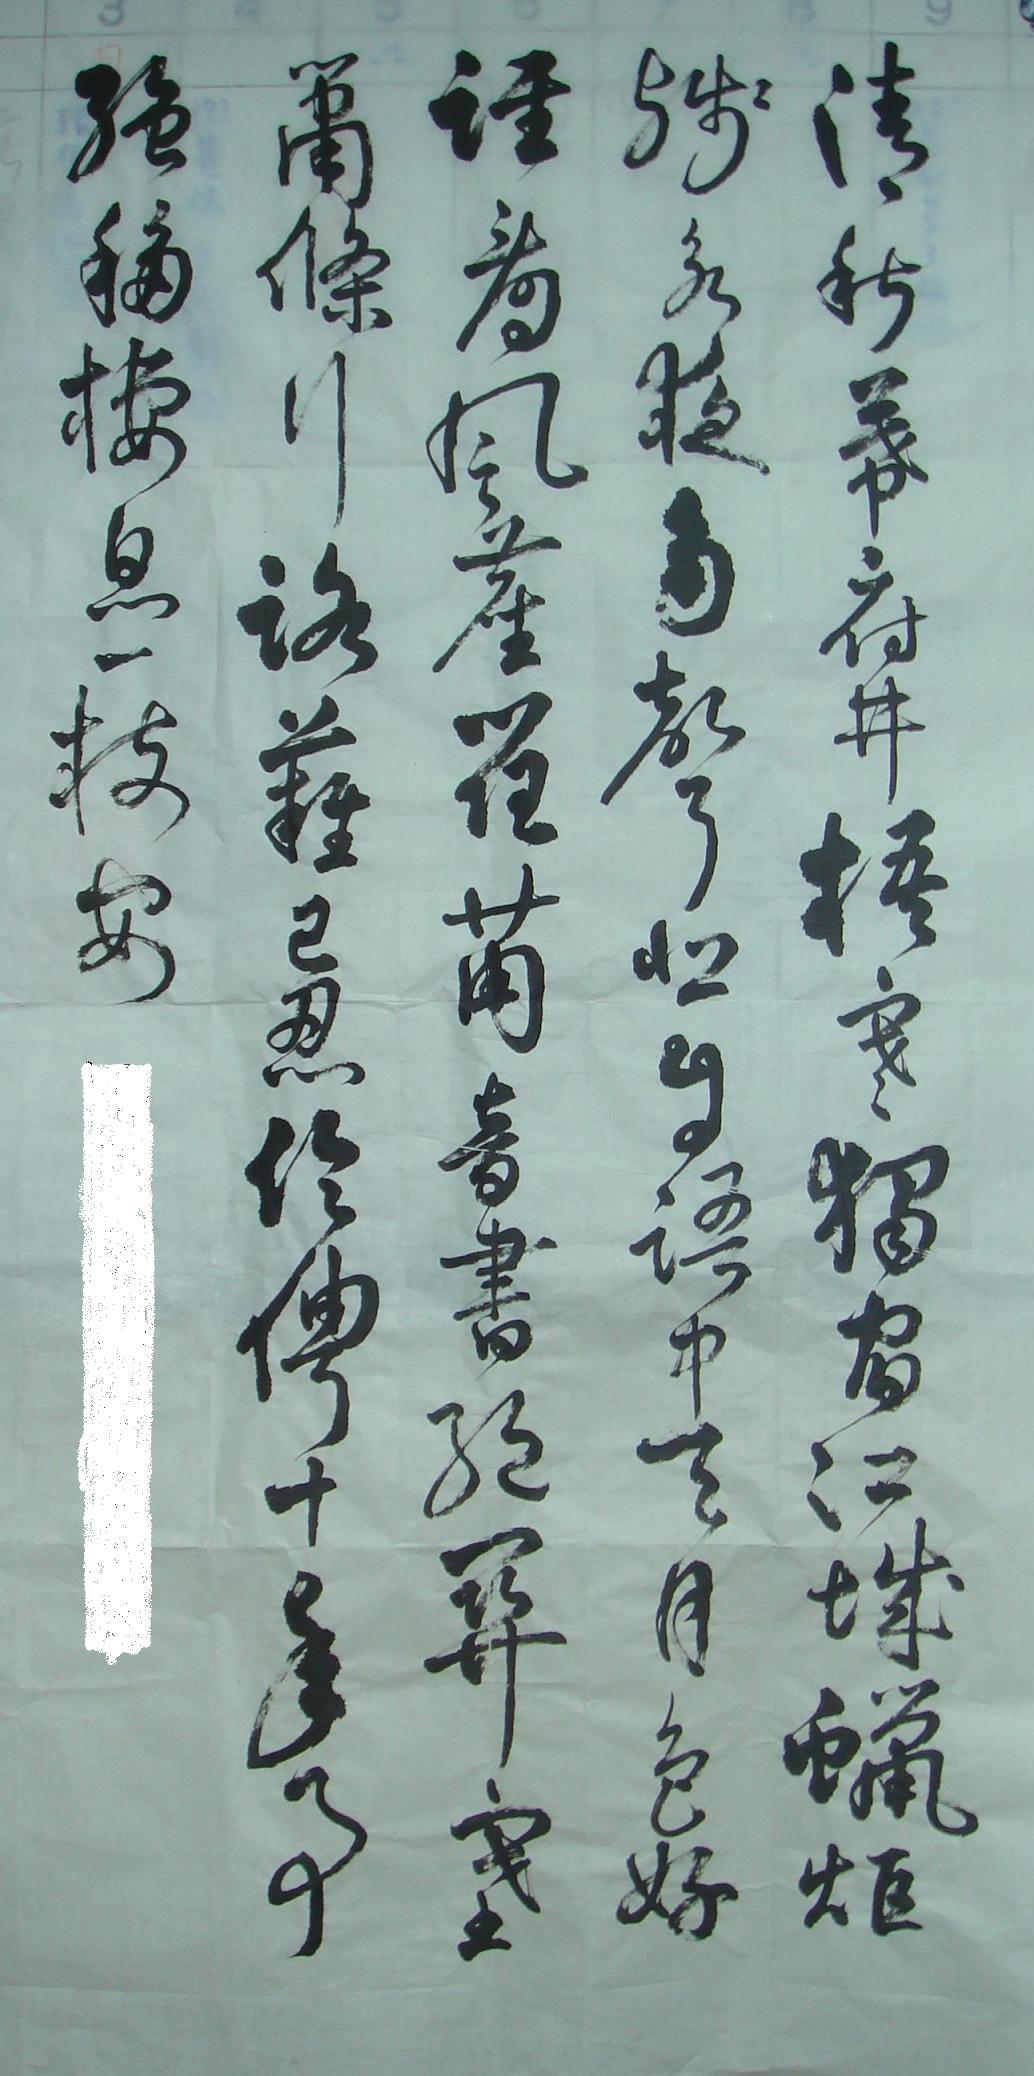 清秋幕府井梧寒獨宿江城蠟炬
殘永夜角聲悲自語中天月色好
誰看風塵荏苒音書絕關塞
蕭條行路難已忍伶俜十年事
強移棲息一枝安